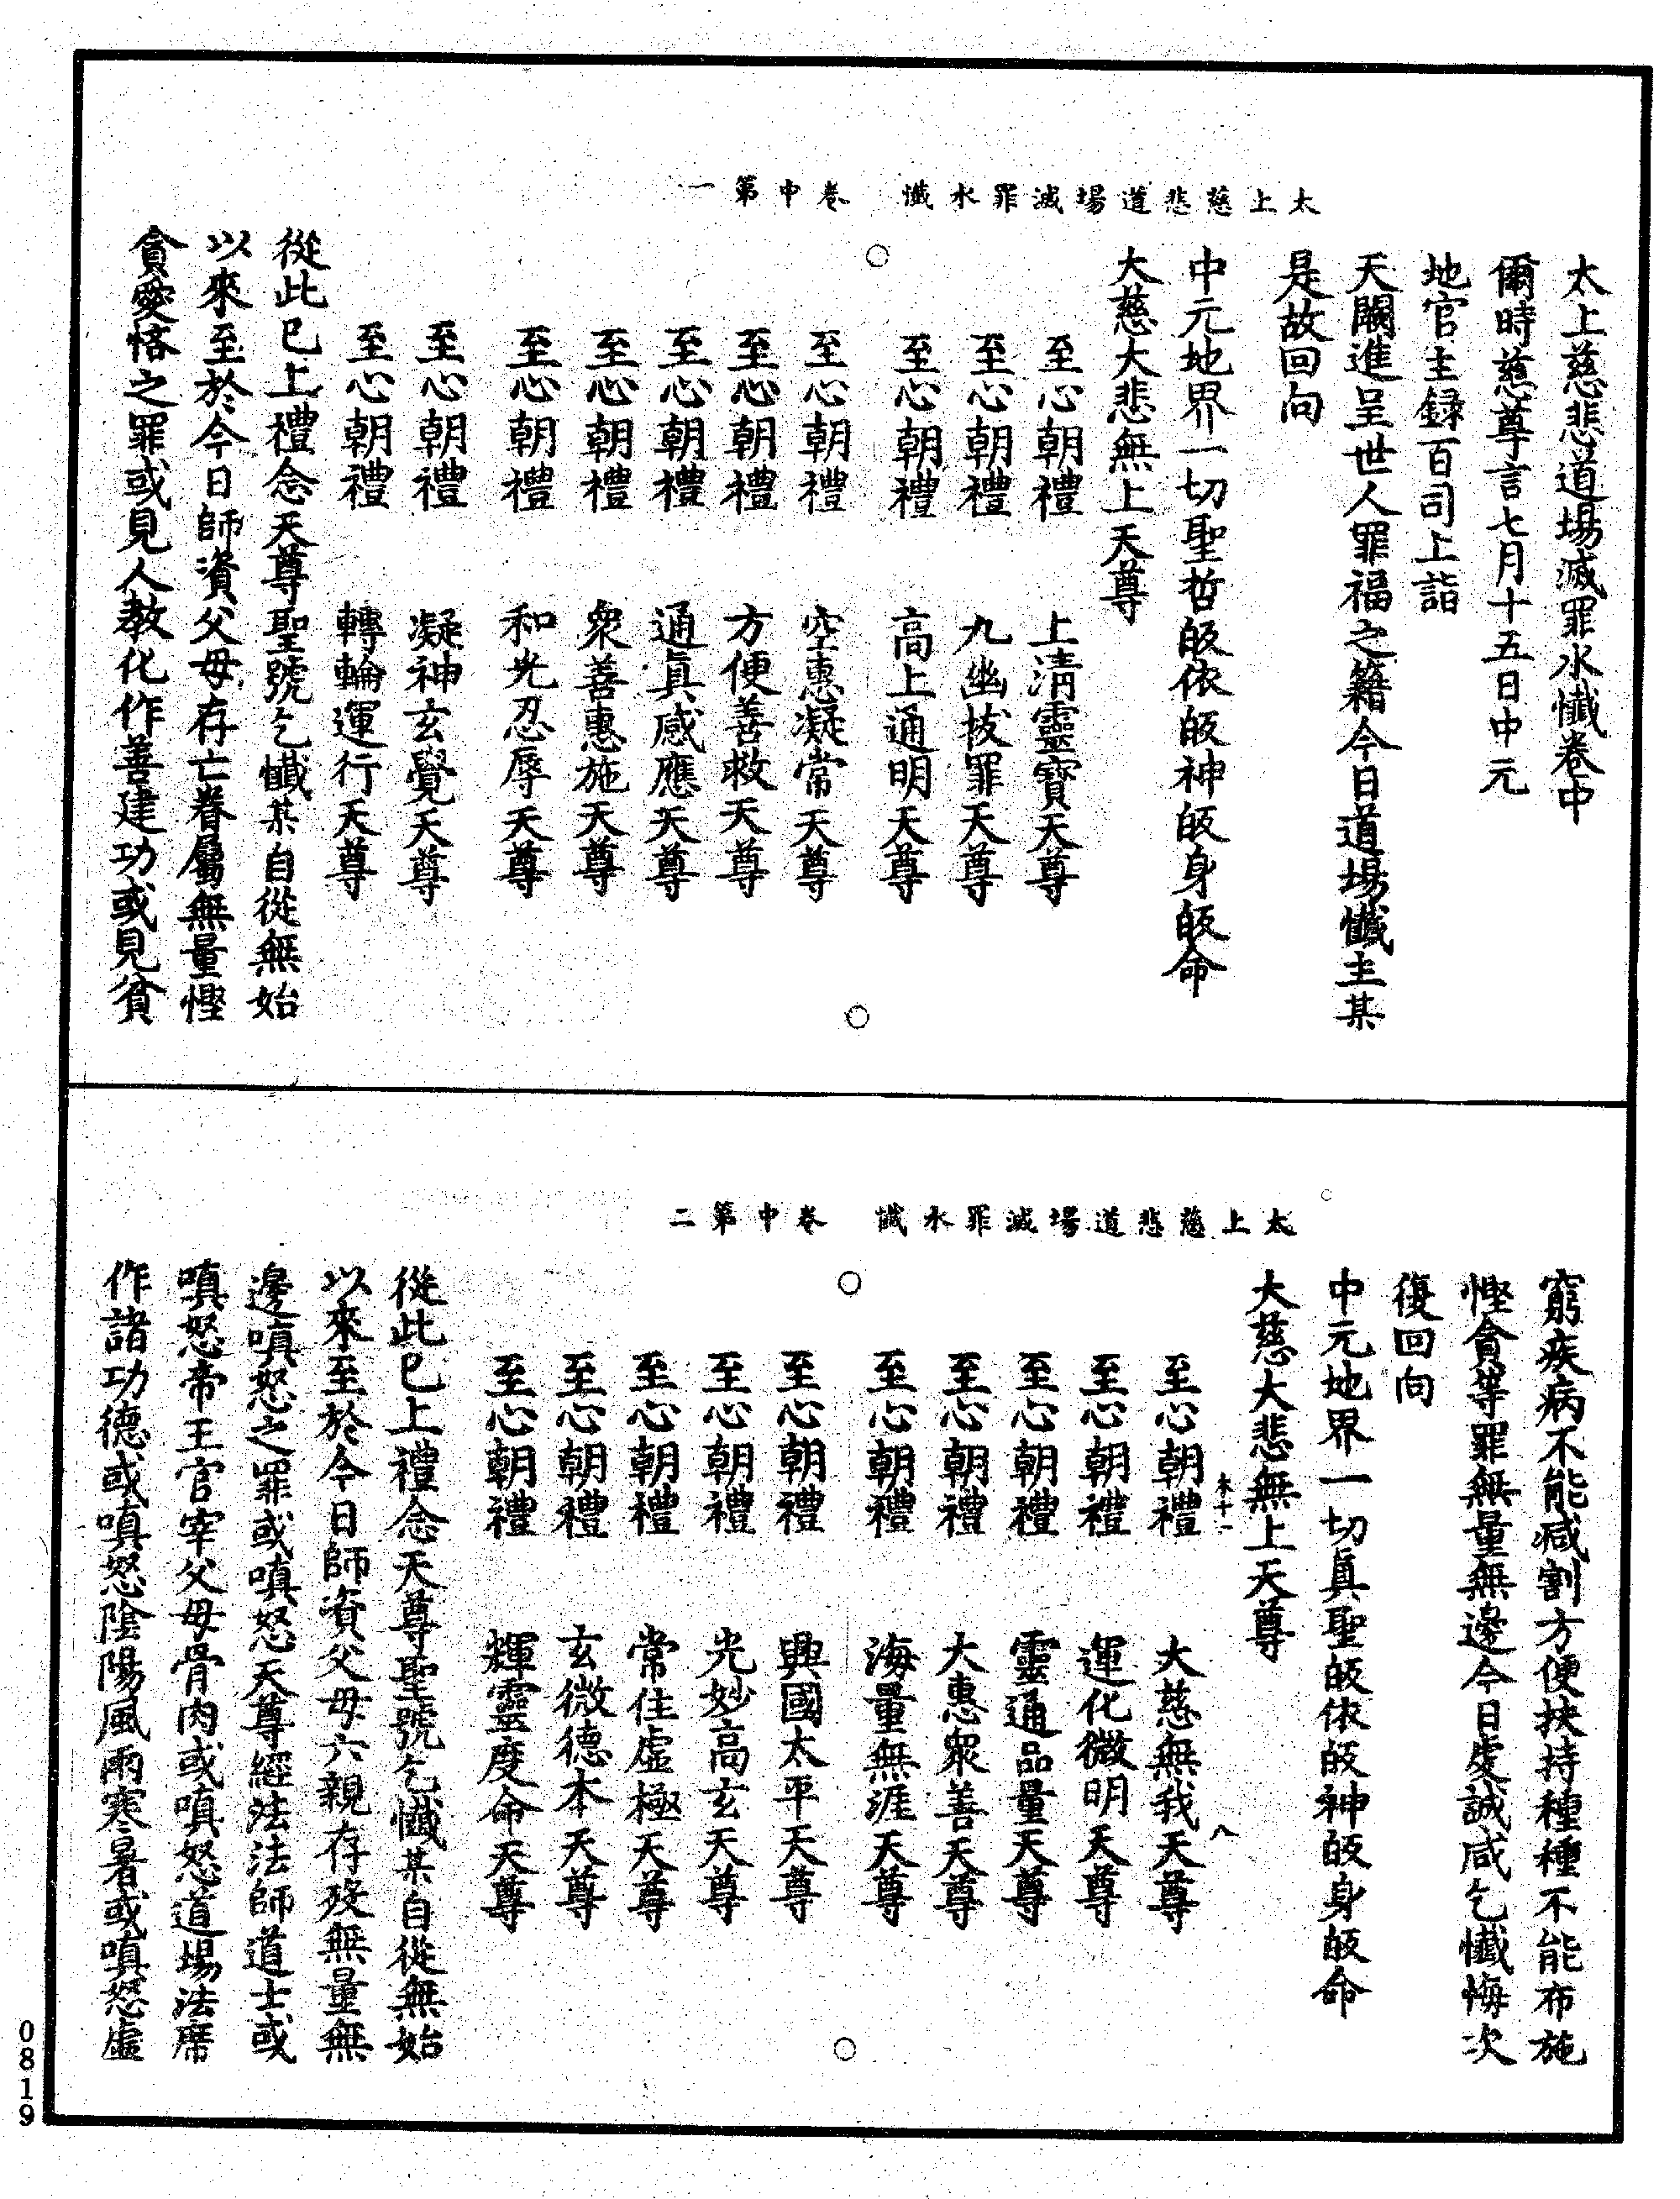 太上慈悲道場滅罪水懺　卷中第一
太上慈悲道場滅罪水懺卷中
爾時慈尊言七月十五日中元
地官主録百司上詣
天闕進呈世人罪福之籍今日道場懺主某
是故回向
中元地界一切聖哲皈依皈神皈身皈命
大慈大悲無上天尊
至心朝禮　上清靈寶天尊
至心朝禮　九幽拔罪天尊
至心朝禮　高上通明天尊
至心朝禮　空惠凝常天尊
至心朝禮　方便善救天尊
至心朝禮　通真感應天尊
至心朝禮　衆善惠施天尊
至心朝禮　和光忍辱天尊
至心朝禮　凝神玄覺天尊
至心朝禮　轉輪運行天尊
從此已上禮念天尊聖號乞懺某自從無始
以來至於今日師資父母存亡眷屬無量慳
貪愛悋之罪或見人教化作善建功或見貧
太上慈悲道場滅罪水懺　卷中第二
窮疾病不能減割方便扶持種種不能布施
慳貪等罪無量無邊今日虔誠咸乞懺悔次
復回向
中元地界一切真聖皈依皈神皈身皈命
大慈大悲無上天尊
木十一　八
至心朝禮　大慈無我天尊
至心朝禮　運化微明天尊
至心朝禮　靈通品量天尊
至心朝禮　大惠衆善天尊
至心朝禮　海量無涯天尊
至心朝禮　興國太平天尊
至心朝禮　光妙高玄天尊
至心朝禮　常住虛極天尊
至心朝禮　玄微德本天尊
至心朝禮　輝靈度命天尊
從此已上禮念天尊聖號乞懺某自從無始
以來至於今日師資父母六親存歿無量無
邊嗔怒之罪或嗔怒天尊經法法師道士或
嗔怒帝王官宰父母骨肉或嗔怒道場法席
作諸功德或嗔怒陰陽風雨寒暑或嗔怒虛
0819